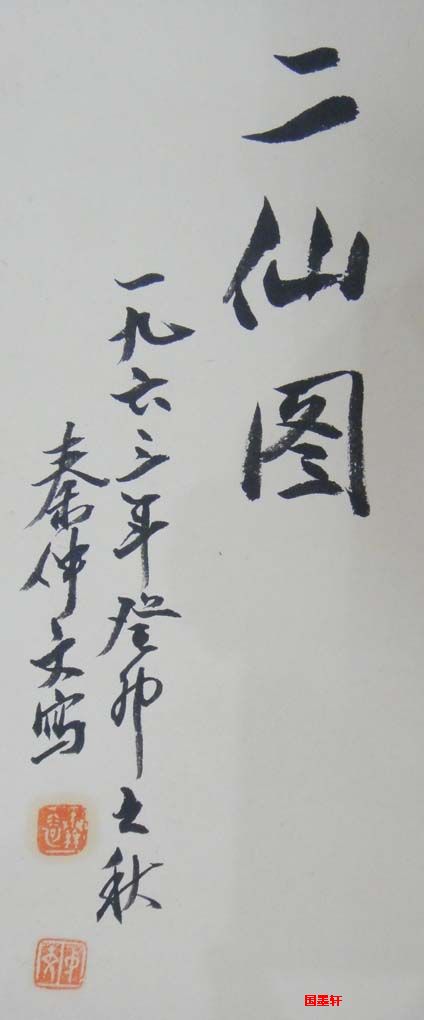 二仙图
一九六三年癸卯之秋
秦仲文写
国墨轩